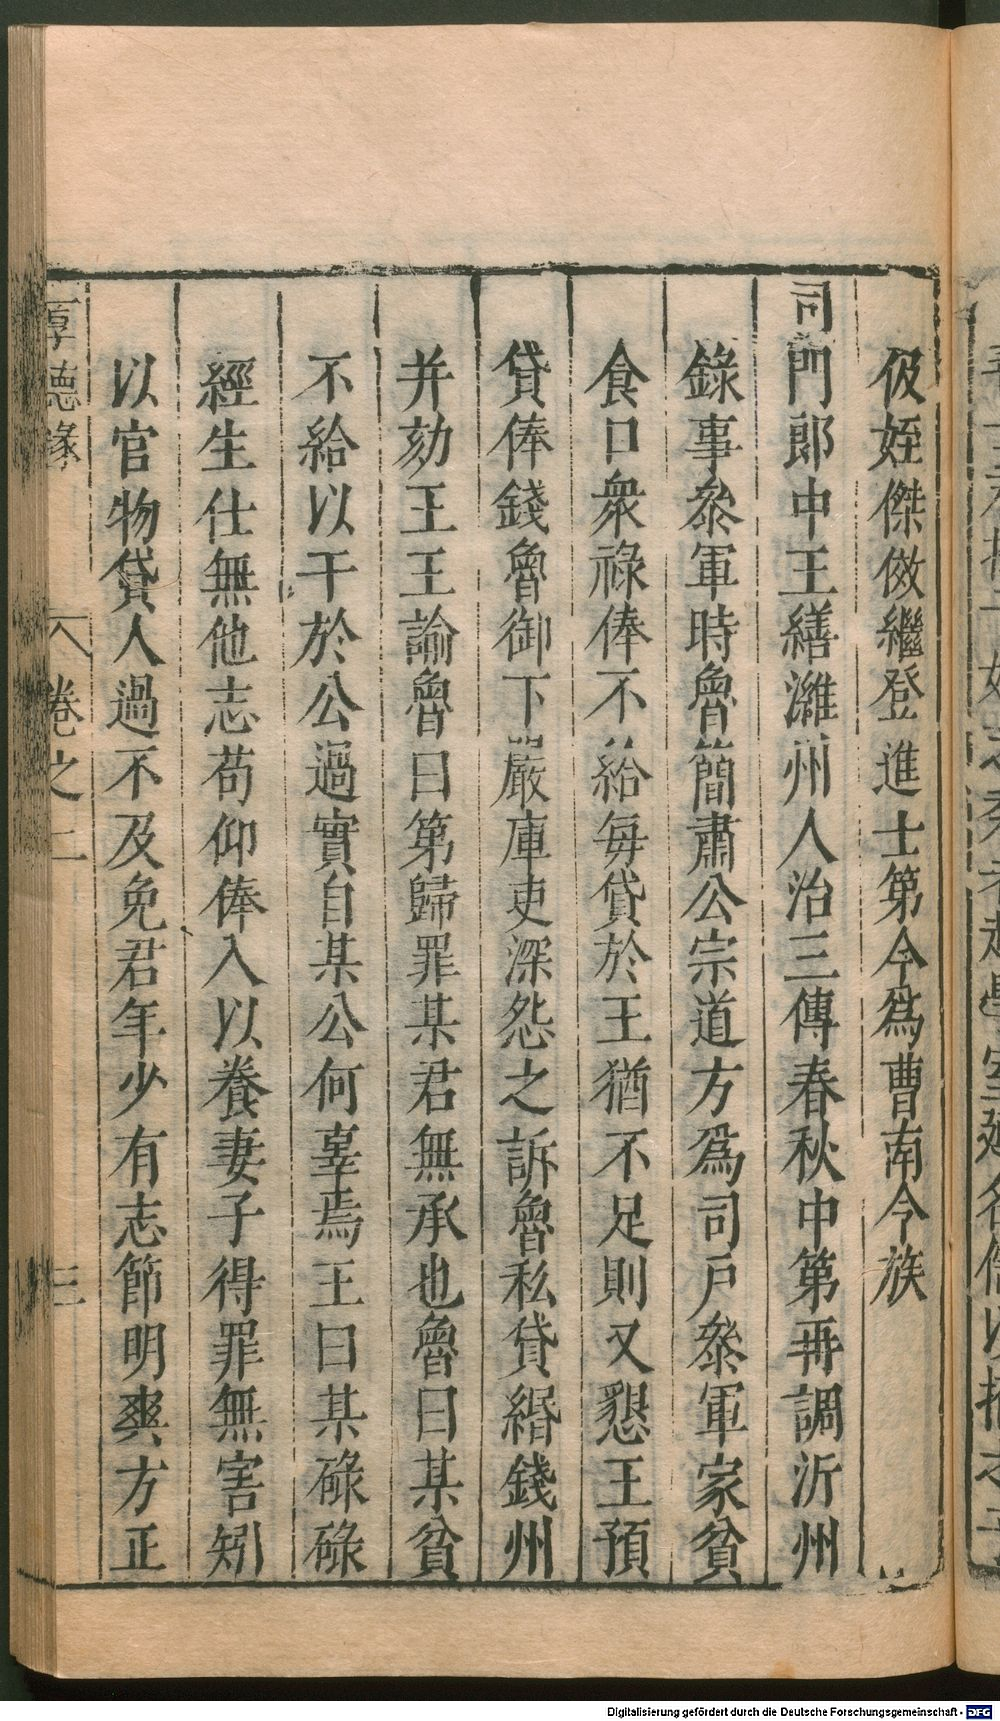 伋姪傑倣繼登進士第今爲曹南令族
司門郎中王繕濰州人治三傳春秋中第再調沂州
錄事叅軍時魯簡肅公宗道方爲司戶叅軍家貧
食口衆祿俸不給每貸於王猶不足則又懇王預
貸俸錢魯御下嚴庫吏深怨之訴魯私貸緡錢州
并劾王王諭魯曰第歸罪某君無承也魯曰某貧
不給以干於公過實自某公何辜焉王曰某碌碌
經生仕無他志苟仰俸入以養妻子得罪無害矧
以官物貸人過不及免君年少有志節明爽方正
厚德錄 卷之二 三
Digitalisierung gefördert durch die Deutsche Forschungsgemeinschaft - DFG